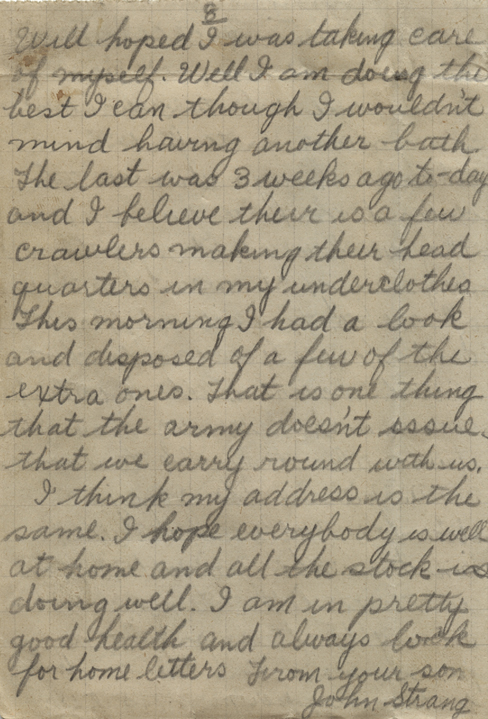 8
Will hoped I was taking care
of myself. Well I am doing the
best I can though I wouldn't
mind having another bath.
The last was 3 weeks ago to-day
and I believe their is a few
crawlers making their head
quarters in my underclothes
This morning I had a look
and disposed of a few of the
extra ones. That is one thing
that the army doesn't issue
that we carry round with us.
I think my address is the
same. I hope everybody is well
at home and all the stock is
doing well. I am in pretty
good health and always look
for home letters From your son
John Strang